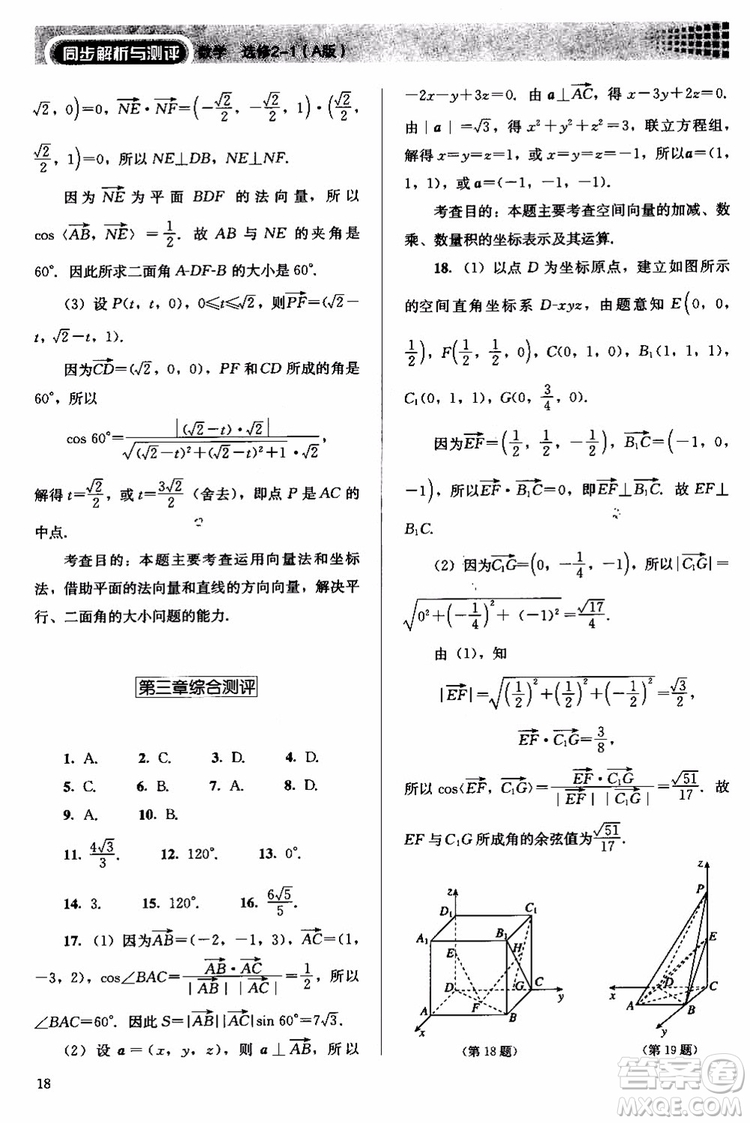 同步解析与测评 数学 选修2-1（A版）
√2, 0)=0, NE·NF=(-√2/2, -√2/2,
√2/2, 1), 所以 NE⊥DB, NE⊥NF.
因为NE为平面 BDF 的法向量, 所以
cos〈AB, NE〉=1/2. 故 AB 与 NE 的夹角是
60°. 因此所求二面角 A-DF-B 的大小是 60°.
(3) 设 P(t, t, 0), 0≤t≤√2, 则PF=(√2-t,
√2-t, 1).
因为CD=(√2, 0, 0), PF 和 CD 所成的角是
60°, 所以
cos 60°=|(√2-t)·√2|/(√((√2-t)²+(√2-t)²+1)·√2),
解得 t=√2/2, 或 t=3√2/2 (舍去), 即点 P 是 AC 的
中点.
考查目的: 本题主要考查运用向量法和坐标
法, 借助平面的法向量和直线的方向向量, 解决平
行、二面角的大小问题的能力.
第三章综合测评
1. A. 2. C. 3. D. 4. D.
5. C. 6. C. 7. D. 8. D.
9. A. 10. B.
11. 4√3/3. 12. 120°. 13. 0°.
14. 3. 15. 120°. 16. 6√5/5.
17. (1) 因为AB=(-2, -1, 3), AC=(1,
-3, 2), cos∠BAC=AB·AC/(|AB||AC|)=1/2, 所以
∠BAC=60°. 因此 S=|AB||AC|sin 60°=7√3.
(2) 设 a=(x, y, z), 则 a⊥AB, 所以
18
-2x-y+3z=0. 由 a⊥AC, 得 x-3y+2z=0.
由|a|=√3, 得 x²+y²+z²=3, 联立方程组,
解得 x=y=z=1 或 x=y=z=-1. 所以a=(1,
1, 1) 或 a=(-1, -1, -1).
考查目的: 本题主要考查空间向量的加减、数
乘、数量积的坐标表示及其运算.
18. (1) 以点 D 为坐标原点, 建立如图所示
的空间直角坐标系 D-xyz, 由题意知 E(0, 0,
1/2), F(1/2, 1/2, 0), C(0, 1, 0), B₁(1, 1, 1),
C₁(0, 1, 1), G(0, 3/4, 0).
因为EF=(1/2, 1/2, -1/2), B₁C=(-1, 0,
-1), 所以EF·B₁C=0, 即EF⊥B₁C. 故 EF⊥
B₁C.
(2) 因为C₁G=(0, -1/4, -1), 所以|C₁G|=
√(0²+(-1/4)²+(-1)²)=√17/4.
由 (1), 知
|EF|=√((1/2)²+(1/2)²+(-1/2)²)=√3/2,
EF·C₁G=3/8,
所以 cos〈EF, C₁G〉=EF·C₁G/(|EF||C₁G|)=√51/17. 故
EF 与 C₁G 所成角的余弦值为√51/17.
z D₁ C₁ A₁ B₁ E H D G C y F A B x
(第 18 题)
z P E D C x A B y
(第 19 题)
答案圈